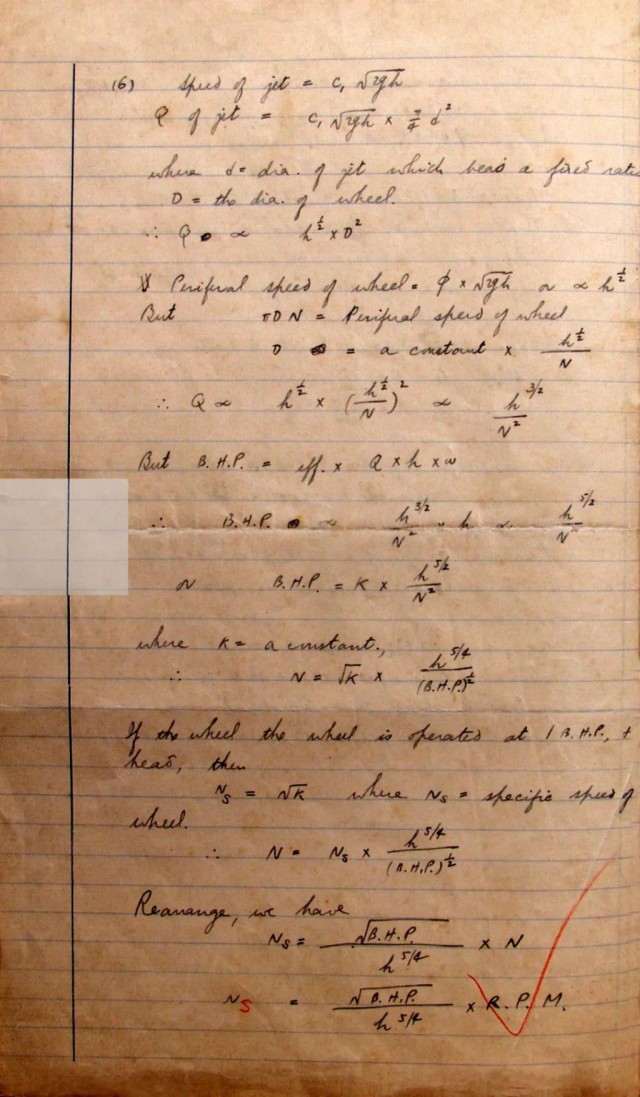 (6) Speed of jet = C₁ √2gh
Q of jet = C₁ √2gh × π/4 d²
where d = dia. of jet which bears a fixed
D = the dia. of wheel.
∴ Q ∝ h^½ × D²
Periferal speed of wheel = φ × √2gh or ∝ h^½
But πDN = Periferal speed of wheel
D = a constant × h^½/N
∴ Q ∝ h^½ × (h^½/N)² ∝ h^3/2/N²
But B.H.P. = eff. × Q × h × w
∴ B.H.P. ∝ h^3/2/N² × h ∝ h^5/2/N²
or B.H.P. = K × h^5/2/N²
where K = a constant.,
∴ N = √K × h^5/4/(B.H.P.)^½
If the wheel the wheel is operated at 1 B.H.P., +
head, then
Ns = √K where Ns = specific speed of
wheel.
∴ N = Ns × h^5/4/(B.H.P.)^½
Rearange, we have
Ns = √B.H.P./h^5/4 × N
Ns = √B.H.P./h^5/4 × R.P.M.